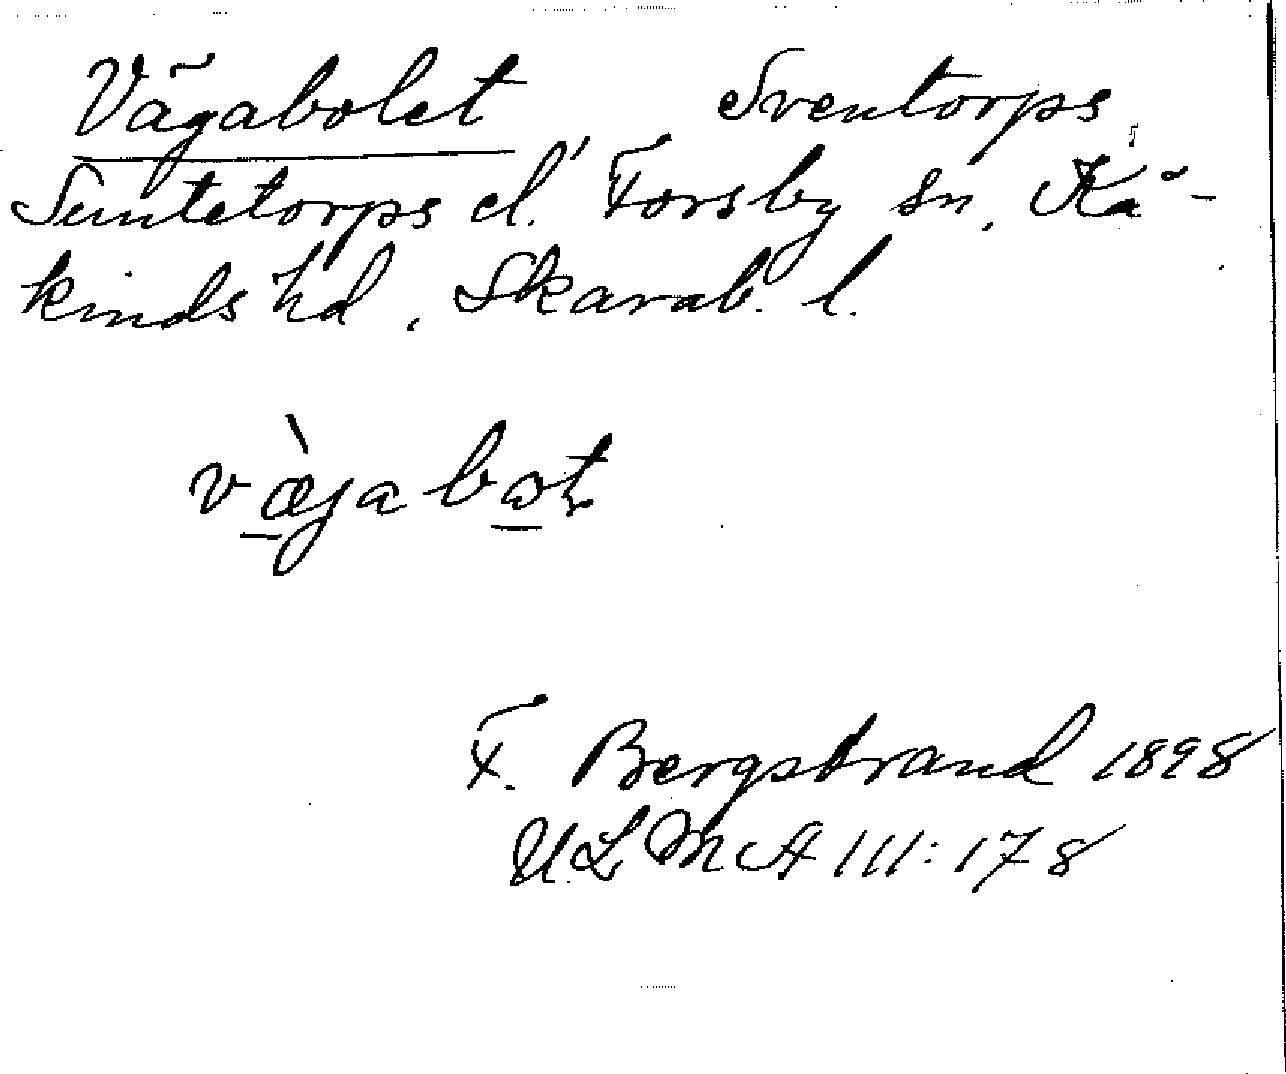 Vägabolet Sventorps,
Suntetorps el. Forsby sn, Kå-
kinds hd, Skarab. l.
vàgabot
F. Bergstrand 1898
ULMA 111:178